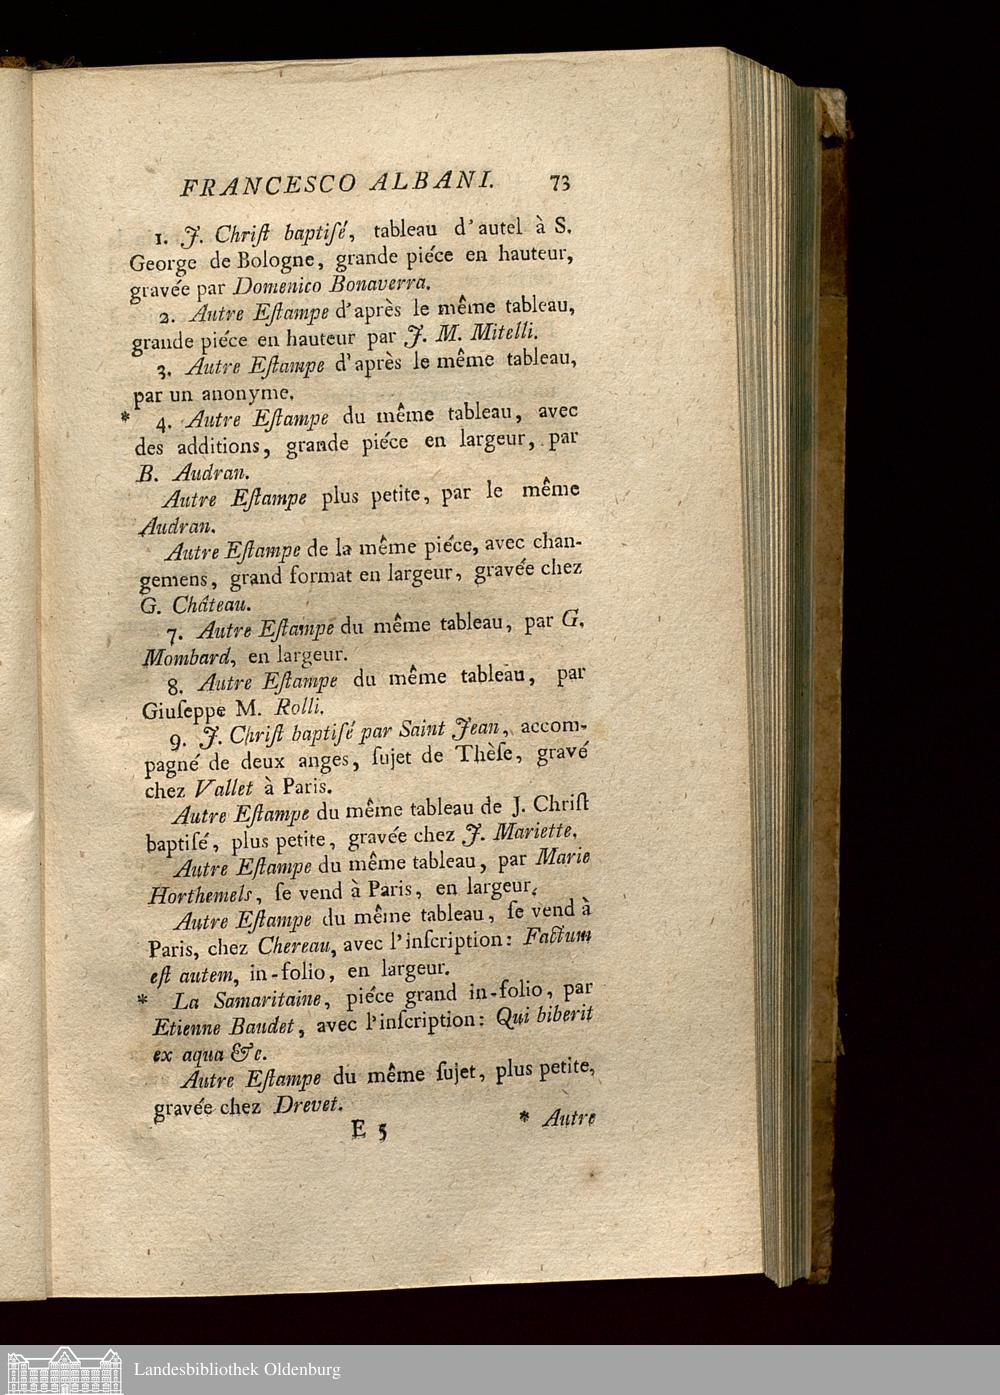 FRANCESCO ALBANI. 73
1. J. Chriſt baptiſé, tableau d'autel à S.
George de Bologne, grande piéce en hauteur,
gravée par Domenico Bonaverra.
2. Autre Eſtampe d'après le même tableau,
grande piéce en hauteur par J. M. Mitelli.
3. Autre Eſtampe d'après le même tableau,
par un anonyme.
* 4. Autre Eſtampe du même tableau, avec
des additions, grande piéce en largeur, par
B. Audran.
Autre Eſtampe plus petite, par le même
Audran.
Autre Eſtampe de la même piéce, avec chan-
gemens, grand format en largeur, gravée chez
G. Château.
7. Autre Eſtampe du même tableau, par G.
Mombard, en largeur.
8. Autre Eſtampe du même tableau, par
Giuſeppe M. Rolli.
9. J. Chriſt baptiſé par Saint Jean, accom-
pagné de deux anges, ſujet de Thèſe, gravé
chez Vallet à Paris.
Autre Eſtampe du même tableau de J. Chriſt
baptiſé, plus petite, gravée chez J. Mariette.
Autre Eſtampe du même tableau, par Marie
Horthemels, ſe vend à Paris, en largeur.
Autre Eſtampe du même tableau, ſe vend à
Paris, chez Chereau, avec l'inſcription: Factum
eſt autem, in-folio, en largeur.
* La Samaritaine, piéce grand in-folio, par
Etienne Baudet, avec l'inſcription: Qui biberit
ex aqua &c.
Autre Eſtampe du même ſujet, plus petite,
gravée chez Drevet.
E 5 * Autre
Landesbibliothek Oldenburg